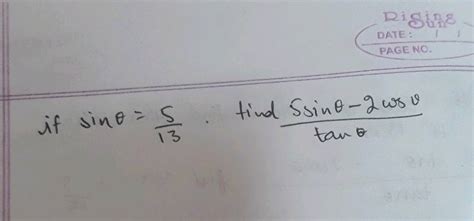 Rising Sun
DATE: / /
PAGE NO.
if sinθ = 5/13 . find (5sinθ - 2cosθ)/tanθ